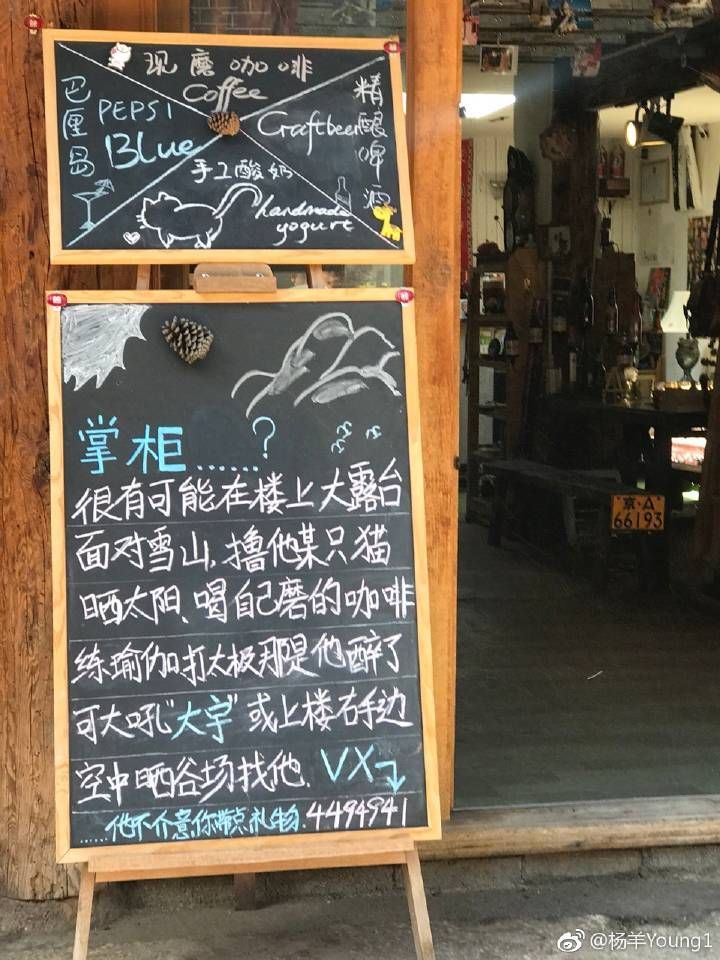 现磨咖啡
Coffee
巴厘岛
PEPSI
Blue
精酿啤酒
Craftbeer
手工酸奶
handmade
yogurt
掌柜......?
很有可能在楼上大露台
面对雪山、撸他某只猫
晒太阳、喝自己磨的咖啡
练瑜伽打太极那是他醉了
可大吼"大宇"或上楼右手边
空中晒谷场找他. VX
......他不介意你带点礼物. 4494941
京·A
66193
@杨羊Young1